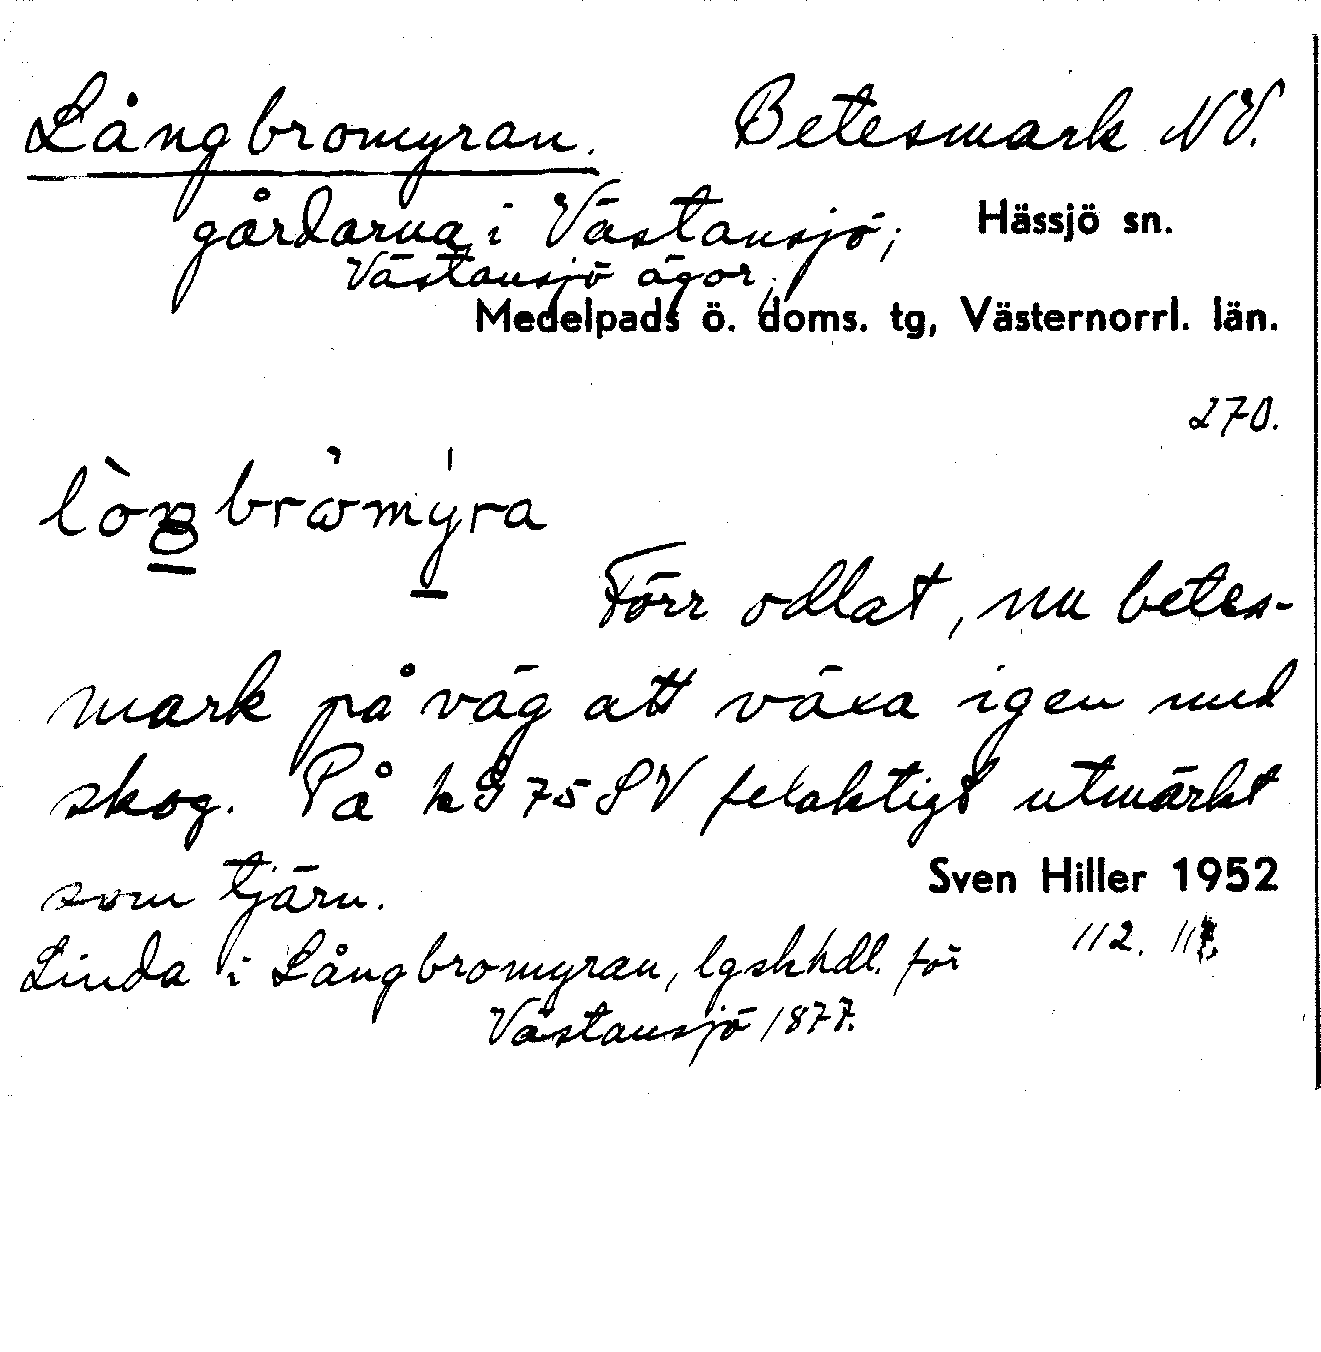 Långbromyran. Betesmark NV.
gårdarna i Västansjö; Hässjö sn.
Västansjö ägor,
Medelpads ö. doms. tg, Västernorrl. län.
270.
Förr odlat, nu betes-
mark på väg att växa igen med
skog. På 75 SV felaktigt utmärkt
som tjärn. Sven Hiller 1952
Linda i Långbromyran, lgskhdl. för 112.
Västansjö 1877.